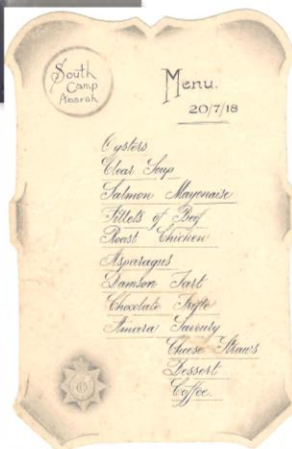 South
Camp
Amarah
Menu.
20/7/18
Oysters
Clear Soup
Salmon Mayonaise
Fillets of Beef
Roast Chicken
Asparagus
Damson Tart
Chocolate Trifle
Amara
Cheese Straws
Dessert
Coffee.